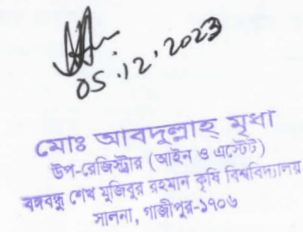 05.12.2023
মোঃ আবদুল্লাহ্ মৃধা
উপ-রেজিস্ট্রার (আইন ও এস্টেট)
বঙ্গবন্ধু শেখ মুজিবুর রহমান কৃষি বিশ্ববিদ্যালয়
সালনা, গাজীপুর-১৭০৬